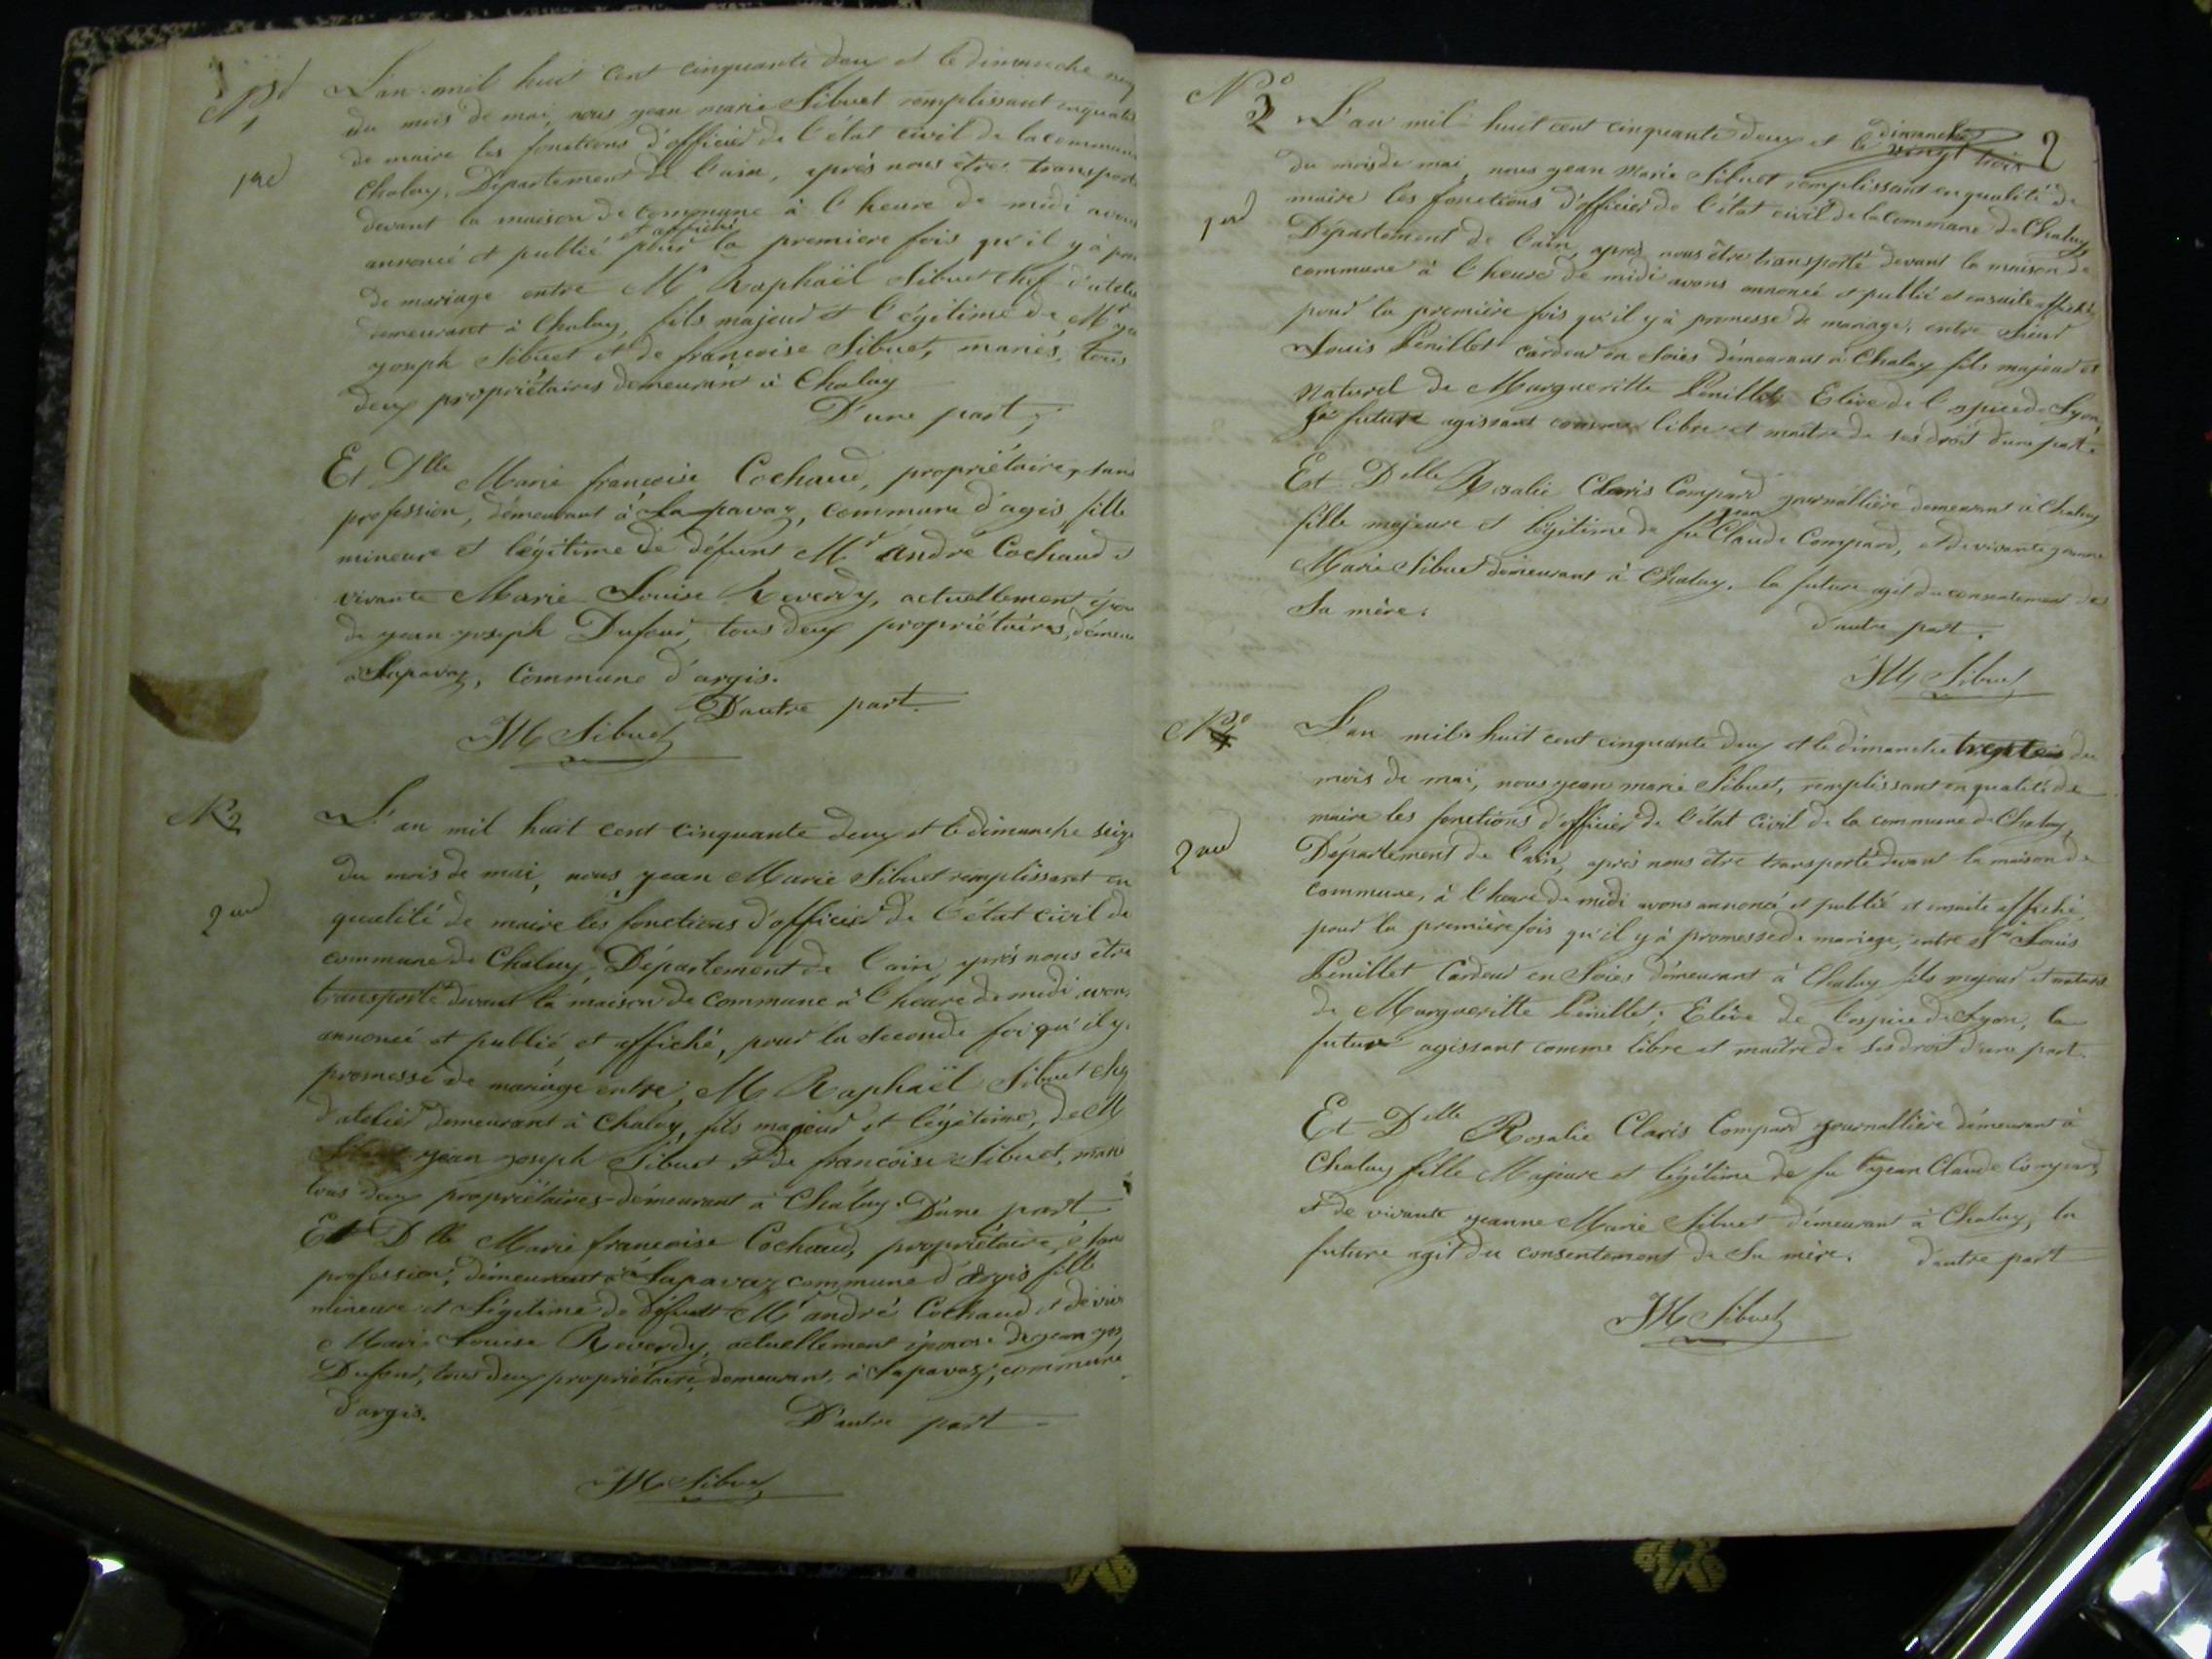 N°
1
1re
L'an mil huit cent cinquante deux et le dimanche neuf
du mois de mai, nous jean marie Sibuet remplissant en qualité
de maire les fonctions d'officier de l'état civil de la commune
Chaley, Département de l'ain, après nous être transporté
devant la maison de commune à l'heure de midi avons
et affiché
annoncé et publié pour la premiere fois qu'il y à pro
de mariage entre Mr Raphaël Sibuet chef d'atelier
demeurant à Chaley, fils majeur et légitime de Mr
joseph Sibuet et de françoise Sibuet, mariés, tous
deux propriétaires demeurant à Chaley
D'une part,
Et Dlle Marie françoise Cochaud, propriétaire, sans
profession, démeurant à Lapavaz, commune d'agis fille
mineure et légitime de défunt Mr andré Cochaud et
vivante Marie Louise Reverdy, actuellement épou
de jean joseph Dufour, tous deux propriétaires, démeu
à Lapavaz, Commune d'argis.
D'autre part.
JM Sibuet
N° 2
2me
L'an mil huit cent cinquante deux et le dimanche seize
du mois de mai, nous jean Marie Sibuet remplissant en
qualité de maire les fonctions d'officier de l'état civil de
commune de Chaley, Département de l'ain, après nous être
transporté devant la maison de commune à l'heure de midi avons
annoncé et publié et affiché, pour la seconde foi qu'il y
promesse de mariage entre, M Raphaël Sibuet chef
d'atelier demeurant à Chaley, fils majeur et légitime, de M
jean joseph Sibuet et de françoise Sibuet, mariés
tous deux propriétaires démeurant à Chaley. D'une part
Et Dlle Marie françoise Cochaud, propriétaire, sans
profession, démeurant à Lapavaz commune d'argis fille
mineure et légitime de défunt Mr andré Cochaud et de viv
Marie Louise Reverdy, actuellement épouse de jean jos
Dufour, tous deux propriétaire, demeurant, à Lapavaz, commune
d'argis. D'autre part
JM Sibuet
N°
3
1re
2
dimanche
L'an mil huit cent cinquante deux et le vingt trois
du mois de mai, nous jean Marie Sibuet remplissant en qualité de
maire les fonctions d'officier de l'état civil de la Commune de Chaley
Département de l'ain, après nous être transporté devant la maison de
commune à l'heure de midi avons annoncé et publié et ensuite affiché,
pour la première fois qu'il y à promesse de mariage, entre Sieur
Louis Penillet cardeur en Soies démeurant à Chaley fils majeur et
Naturel de Margueritte Penillet, Elève de l'ospice de Lyon,
le future agissant comme libre et maitre de ses droit d'une part.
Et Delle Rosalie Claris Compard journallière demeurant à Chaley
jean
fille majeure et légitime de fu Claude Compard, et de vivante jeanne
Marie Sibuet demeurant à Chaley, la future agit du consentement de
Sa mère.
d'autre part.
JM Sibuet
N°
4
2me
L'an mil huit cent cinquante deux et le dimanche trente du
mois de mai, nous jean marie Sibuet, remplissant en qualité de
maire les fonctions d'officier de l'état Civil de la commune de Chaley,
Département de l'ain, après nous être transporté devant la maison de
commune, à l'heure de midi avons annoncé et publié et ensuite affiché,
pour la première fois qu'il y à promesse de mariage, entre Sr Louis
Penillet Cardeur en Soies démeurant à Chaley fils majeur et naturel
de Margueritte Penillet, Elève de l'ospice de Lyon, le
futur agissant comme libre et maitre de ses droit d'une part.
Et Delle Rosalie Claris Compard journallière démeurant à
Chaley fille Majeure et légitime de fu jean Claude Compard
et de vivante jeanne Marie Sibuet démeurant à Chaley, la
future agit du consentement de Sa mère. d'autre part
JM Sibuet